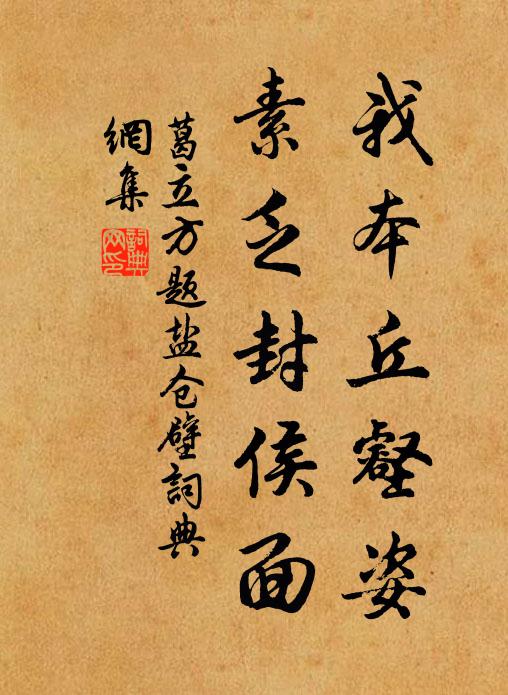 我本丘壑姿
素乏封侯面
葛立方题盐仓壁詞典
網集
詞典
网印